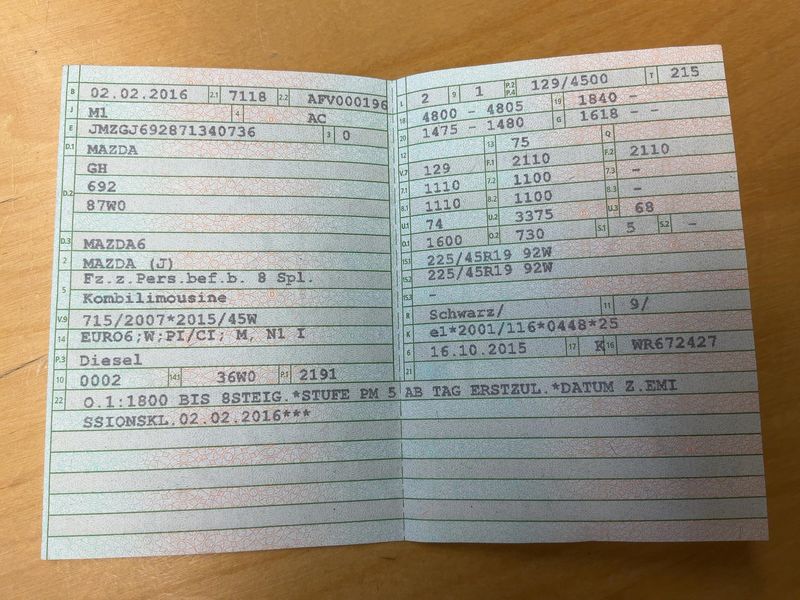 B 02.02.2016 2.1 7118 2.2 AFV000196
J M1 4 AC
E JMZGJ692871340736 3 0
D.1 MAZDA
GH
D.2 692
87W0
D.3 MAZDA6
2 MAZDA (J)
5 Fz.z.Pers.bef.b. 8 Spl.
Kombilimousine
V.9 715/2007*2015/45W
14 EURO6;W;PI/CI; M, N1 I
P.3 Diesel
10 0002 14.1 36W0 P.1 2191
L 2 9 1 P.2 P.4 129/4500 T 215
18 4800 - 4805 19 1840 -
20 1475 - 1480 G 1618 - -
12 13 75 Q
V.7 129 F.1 2110 F.2 2110
7.1 1110 7.2 1100 7.3 -
8.1 1110 8.2 1100 8.3 -
U.1 74 U.2 3375 U.3 68
O.1 1600 O.2 730 S.1 5 S.2 -
15.1 225/45R19 92W
15.2 225/45R19 92W
15.3 -
R Schwarz/ 11 9/
K e1*2001/116*0448*25
6 16.10.2015 17 K 16 WR672427
21
22 O.1:1800 BIS 8STEIG.*STUFE PM 5 AB TAG ERSTZUL.*DATUM Z.EMI
SSIONSKL.02.02.2016***